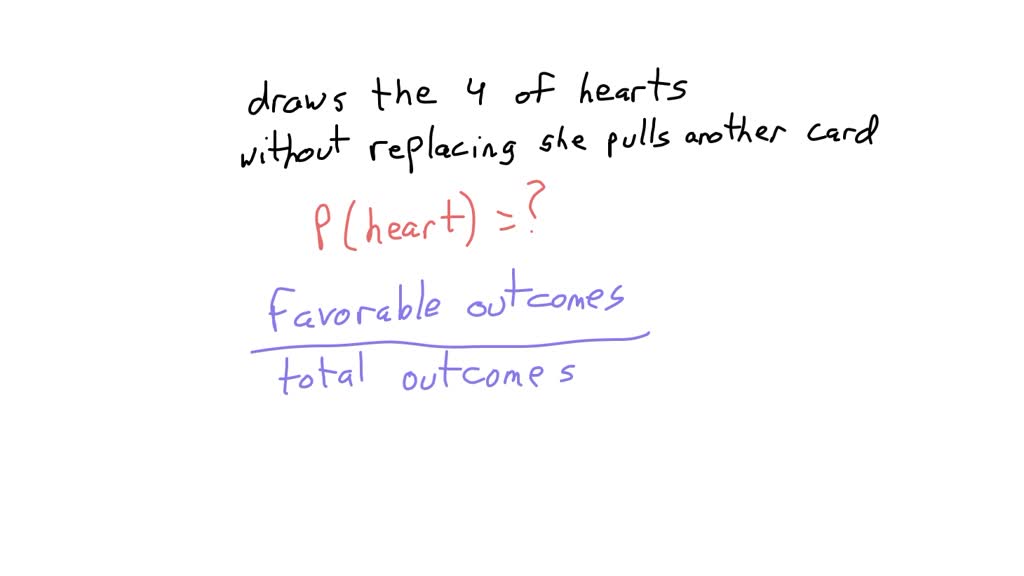 draws the 4 of hearts
without replacing she pulls another card
P(heart) = ?
favorable outcomes
total outcomes